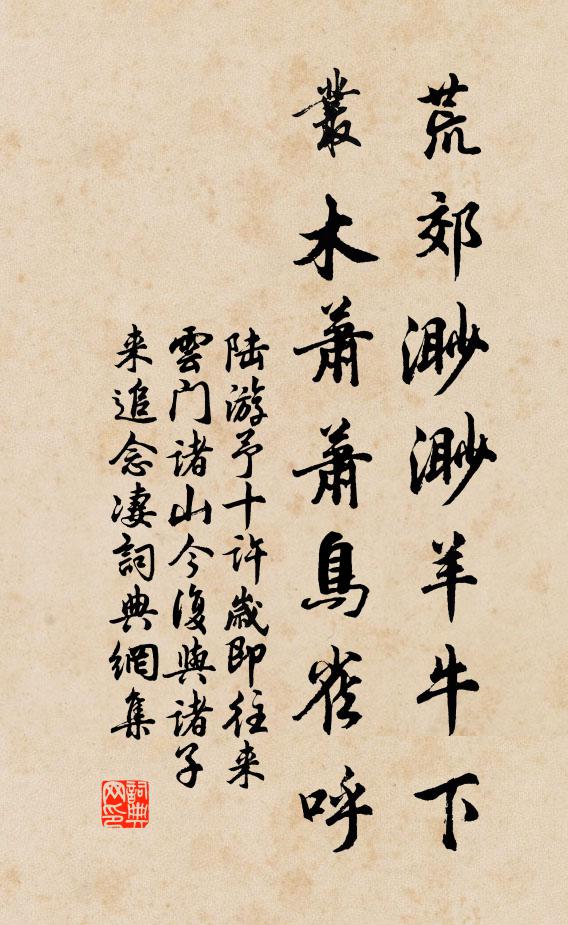 荒郊渺渺羊牛下
叢木蕭蕭鳥雀呼
陆游予十许歲即往来
雲门诸山今復與诸子
来追念凄詞典網集
詞典网印